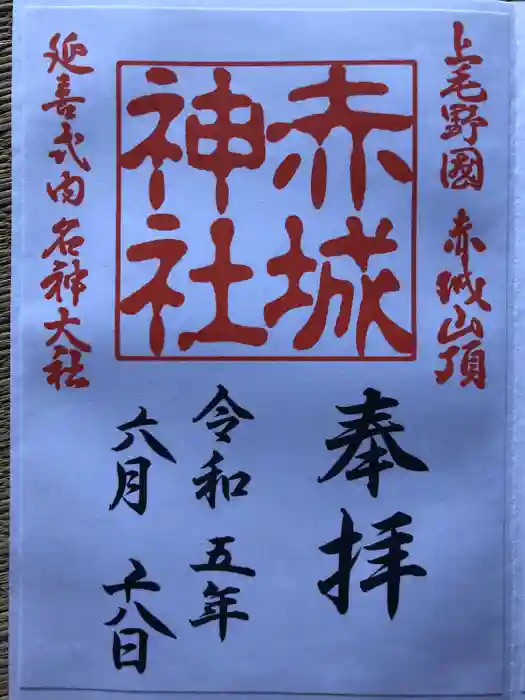 上毛野國 赤城山頂
赤城
神社
延喜式内 名神大社
奉拝
令和 五年
六月 十八日